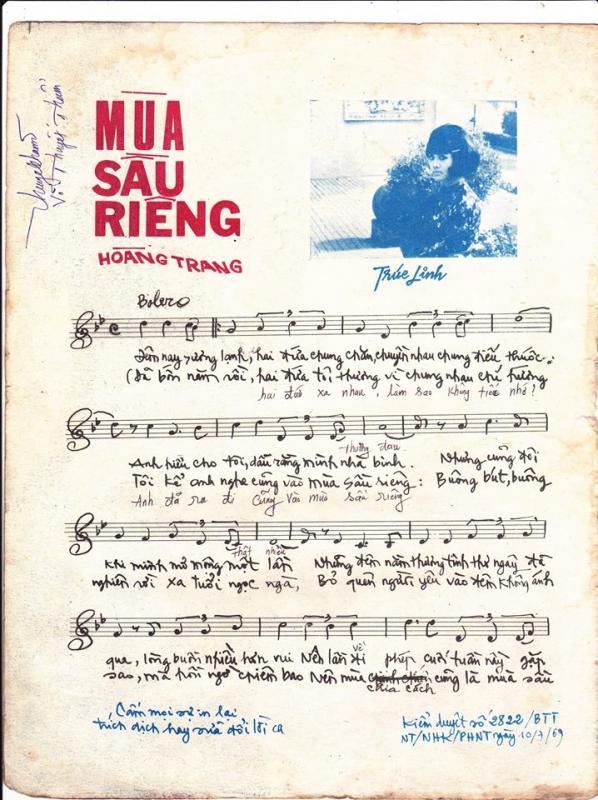 MÙA
SẦU
RIÊNG
HOÀNG TRANG
Trúc Linh
Bolero
Đêm nay sương lạnh, hai đứa chung chăn, chuyện nhau chung điếu thuốc.
(Đã bốn năm rồi, hai đứa tôi thương vì chung nhau chí hướng
hai đứa xa nhau, làm sao không tiếc nhớ?
thường dân
Anh hiểu cho tôi, dẫu rằng mình nhà binh. Nhưng cũng đôi
Tôi kể anh nghe cũng vào mùa sầu riêng: Buông bút, buông
Anh đã ra đi cũng vào mùa sầu riêng
thật nhiều
khi mình mơ mộng một lần Những đêm nằm thương tình thư ngày đã
nghiên rồi xa tuổi ngọc ngà, Bỏ quên người yêu vào đêm không ánh
về
qua, lòng buồn nhiều hơn vui Nên lần đi phép cuối tuần này gặp
sao, mà hồi ngỡ chiêm bao Nên mùa chinh chiến cũng là mùa sầu
chia cách
Cấm mọi sự in lại
trích dịch hay sửa đổi lời ca
Kiểm duyệt số 2822/BTT
NT/NHK/PHNT ngày 10/7/69